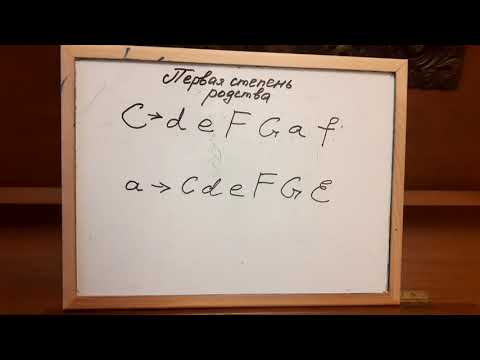 Первая степень
родства
C→d e F G a f
a→C d e F G E